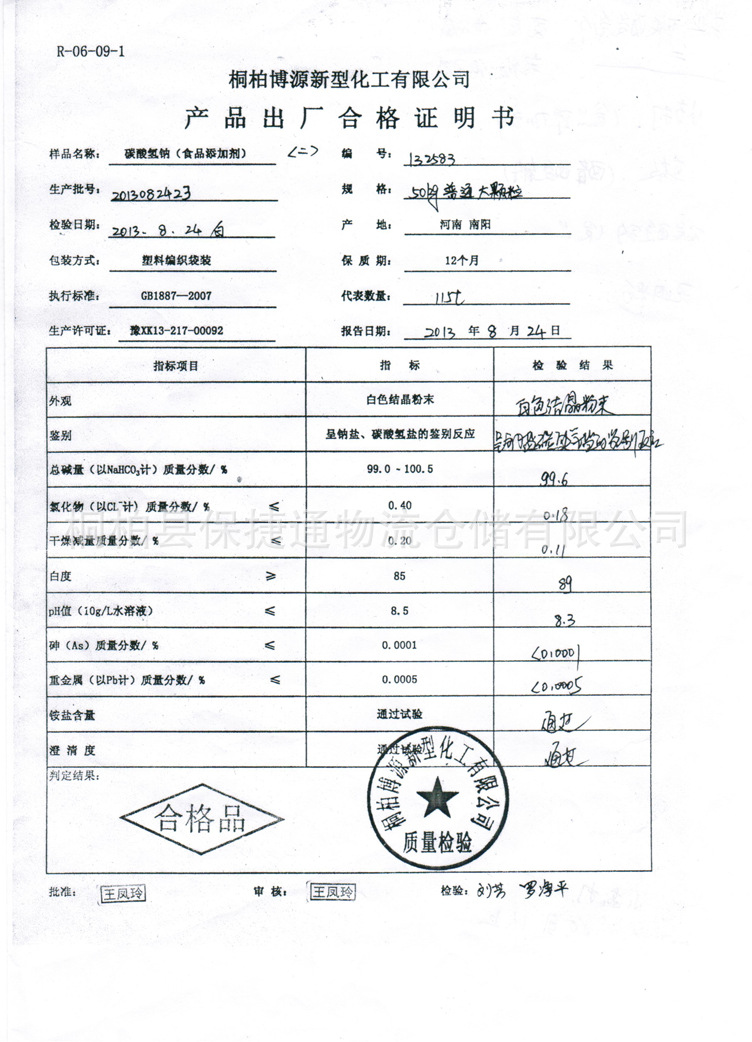 R-06-09-1
桐柏博源新型化工有限公司
产品出厂合格证明书
样品名称： 碳酸氢钠（食品添加剂） <二> 编 号： 132583
生产批号： 2013082423 规 格： 50kg普通大颗粒
检验日期： 2013. 8. 24 白 产 地： 河南 南阳
包装方式： 塑料编织袋装 保 质 期： 12个月
执行标准： GB1887—2007 代表数量： 115t
生产许可证： 豫XK13-217-00092 报告日期： 2013 年 8 月 24 日
指标项目 指 标 检 验 结 果
外观 白色结晶粉末 白色结晶粉末
鉴别 呈钠盐、碳酸氢盐的鉴别反应 呈钠盐碳酸氢盐的鉴别反应
总碱量（以NaHCO₃计）质量分数/ % 99.0 - 100.5 99.6
氯化物（以CL⁻计）质量分数/ % ≤ 0.40 0.18
干燥减量质量分数/ % ≤ 0.20 0.11
白度 ≥ 85 89
pH值（10g/L水溶液） ≤ 8.5 8.3
砷（As）质量分数/ % ≤ 0.0001 <0.0001
重金属（以Pb计）质量分数/ % ≤ 0.0005 <0.0005
铵盐含量 通过试验 通过
澄 清 度 通过试验 通过
判定结果：
合格品
桐柏博源新型化工有限公司
质量检验
批准： 王凤玲 审 核： 王凤玲 检验： 刘芳
桐柏县保捷通物流仓储有限公司